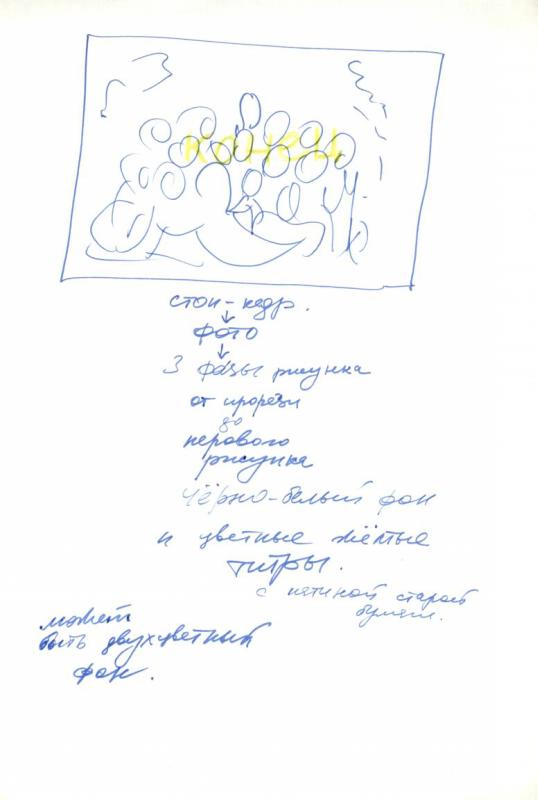 конец
стоп-кадр.
фото
3 фазы рисунка
от прорези
до
перового
рисунка
чёрно-белый фон
и цветные жёлтые
титры.
с патиной старой
бумаги.
может
быть двухцветный
фон.